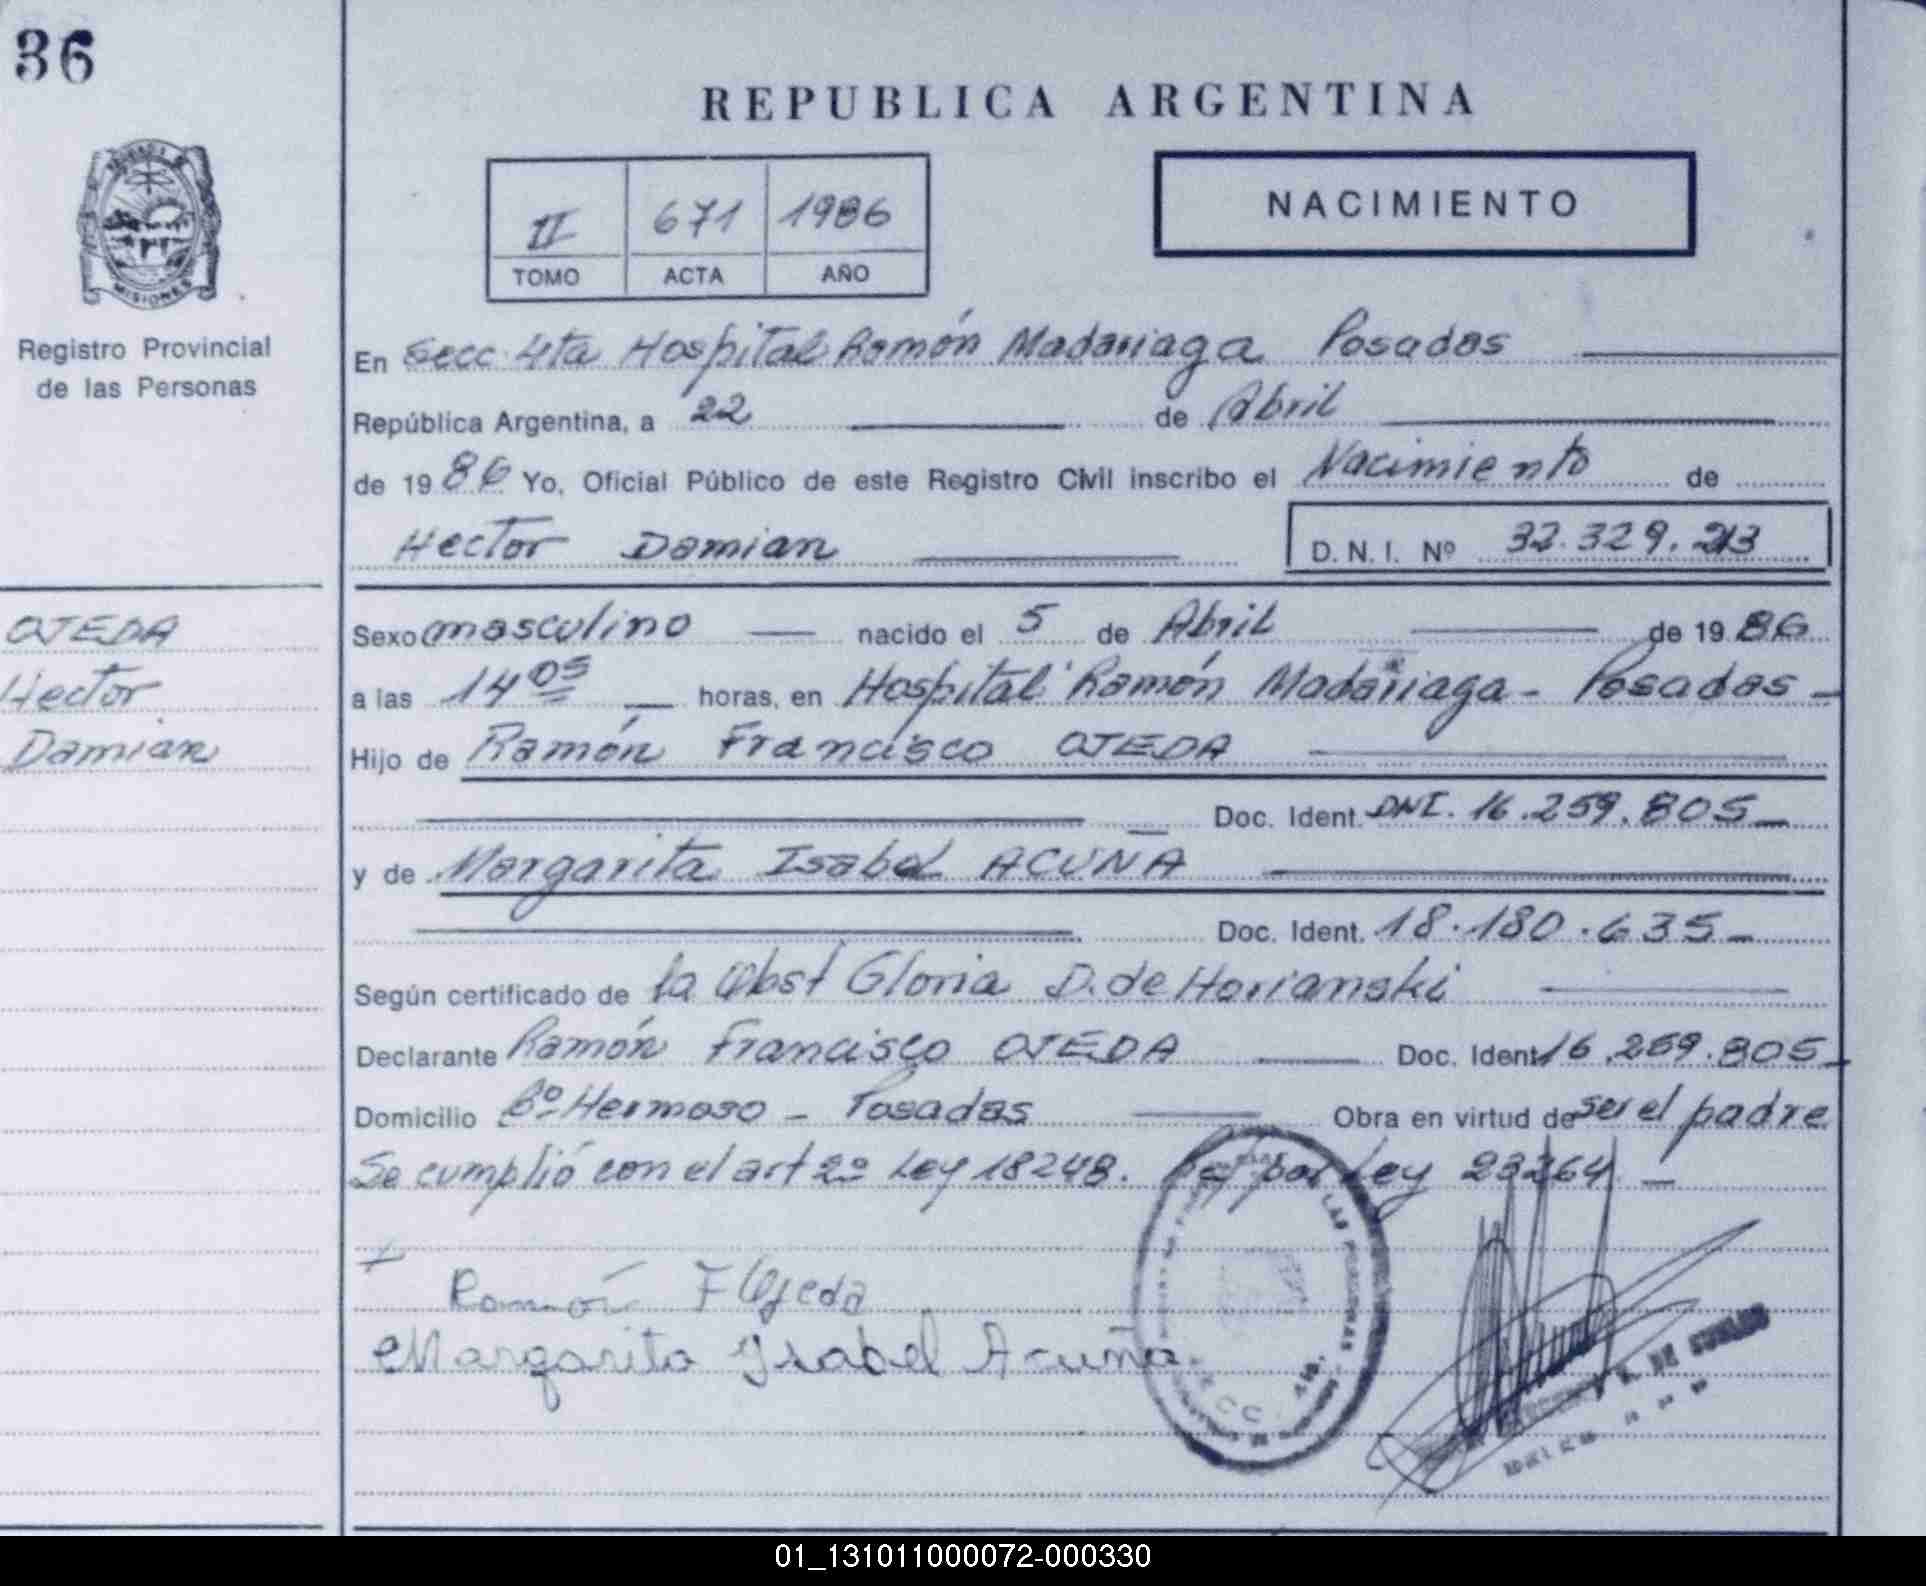 36
REPUBLICA ARGENTINA
II 671 1986
TOMO ACTA AÑO
NACIMIENTO
MISIONES
Registro Provincial
de las Personas
En Secc 4ta Hospital Ramón Madariaga Posadas
República Argentina, a 22 de Abril
de 1986 Yo, Oficial Público de este Registro Civil inscribo el Nacimiento de
Hector Damian D.N.I. Nº 32.329.213
OJEDA
Hector
Damian
Sexo masculino nacido el 5 de Abril de 1986
a las 14 05 horas, en Hospital Ramón Madariaga - Posadas -
Hijo de Ramón Francisco OJEDA
Doc. Ident. DNI. 16.259.805 -
y de Margarita Isabel ACUÑA
Doc. Ident. 18.180.635 -
Según certificado de la Obst Gloria D. de Horianski
Declarante Ramón Francisco OJEDA Doc. Ident 16.259.805 -
Domicilio Bº Hermoso - Posadas Obra en virtud de ser el padre
Se cumplió con el art 2º Ley 18248. por Ley 23264 -
Ramón F Ojeda
Margarita Ysabel Acuña
LAS PERSONAS
01_131011000072-000330